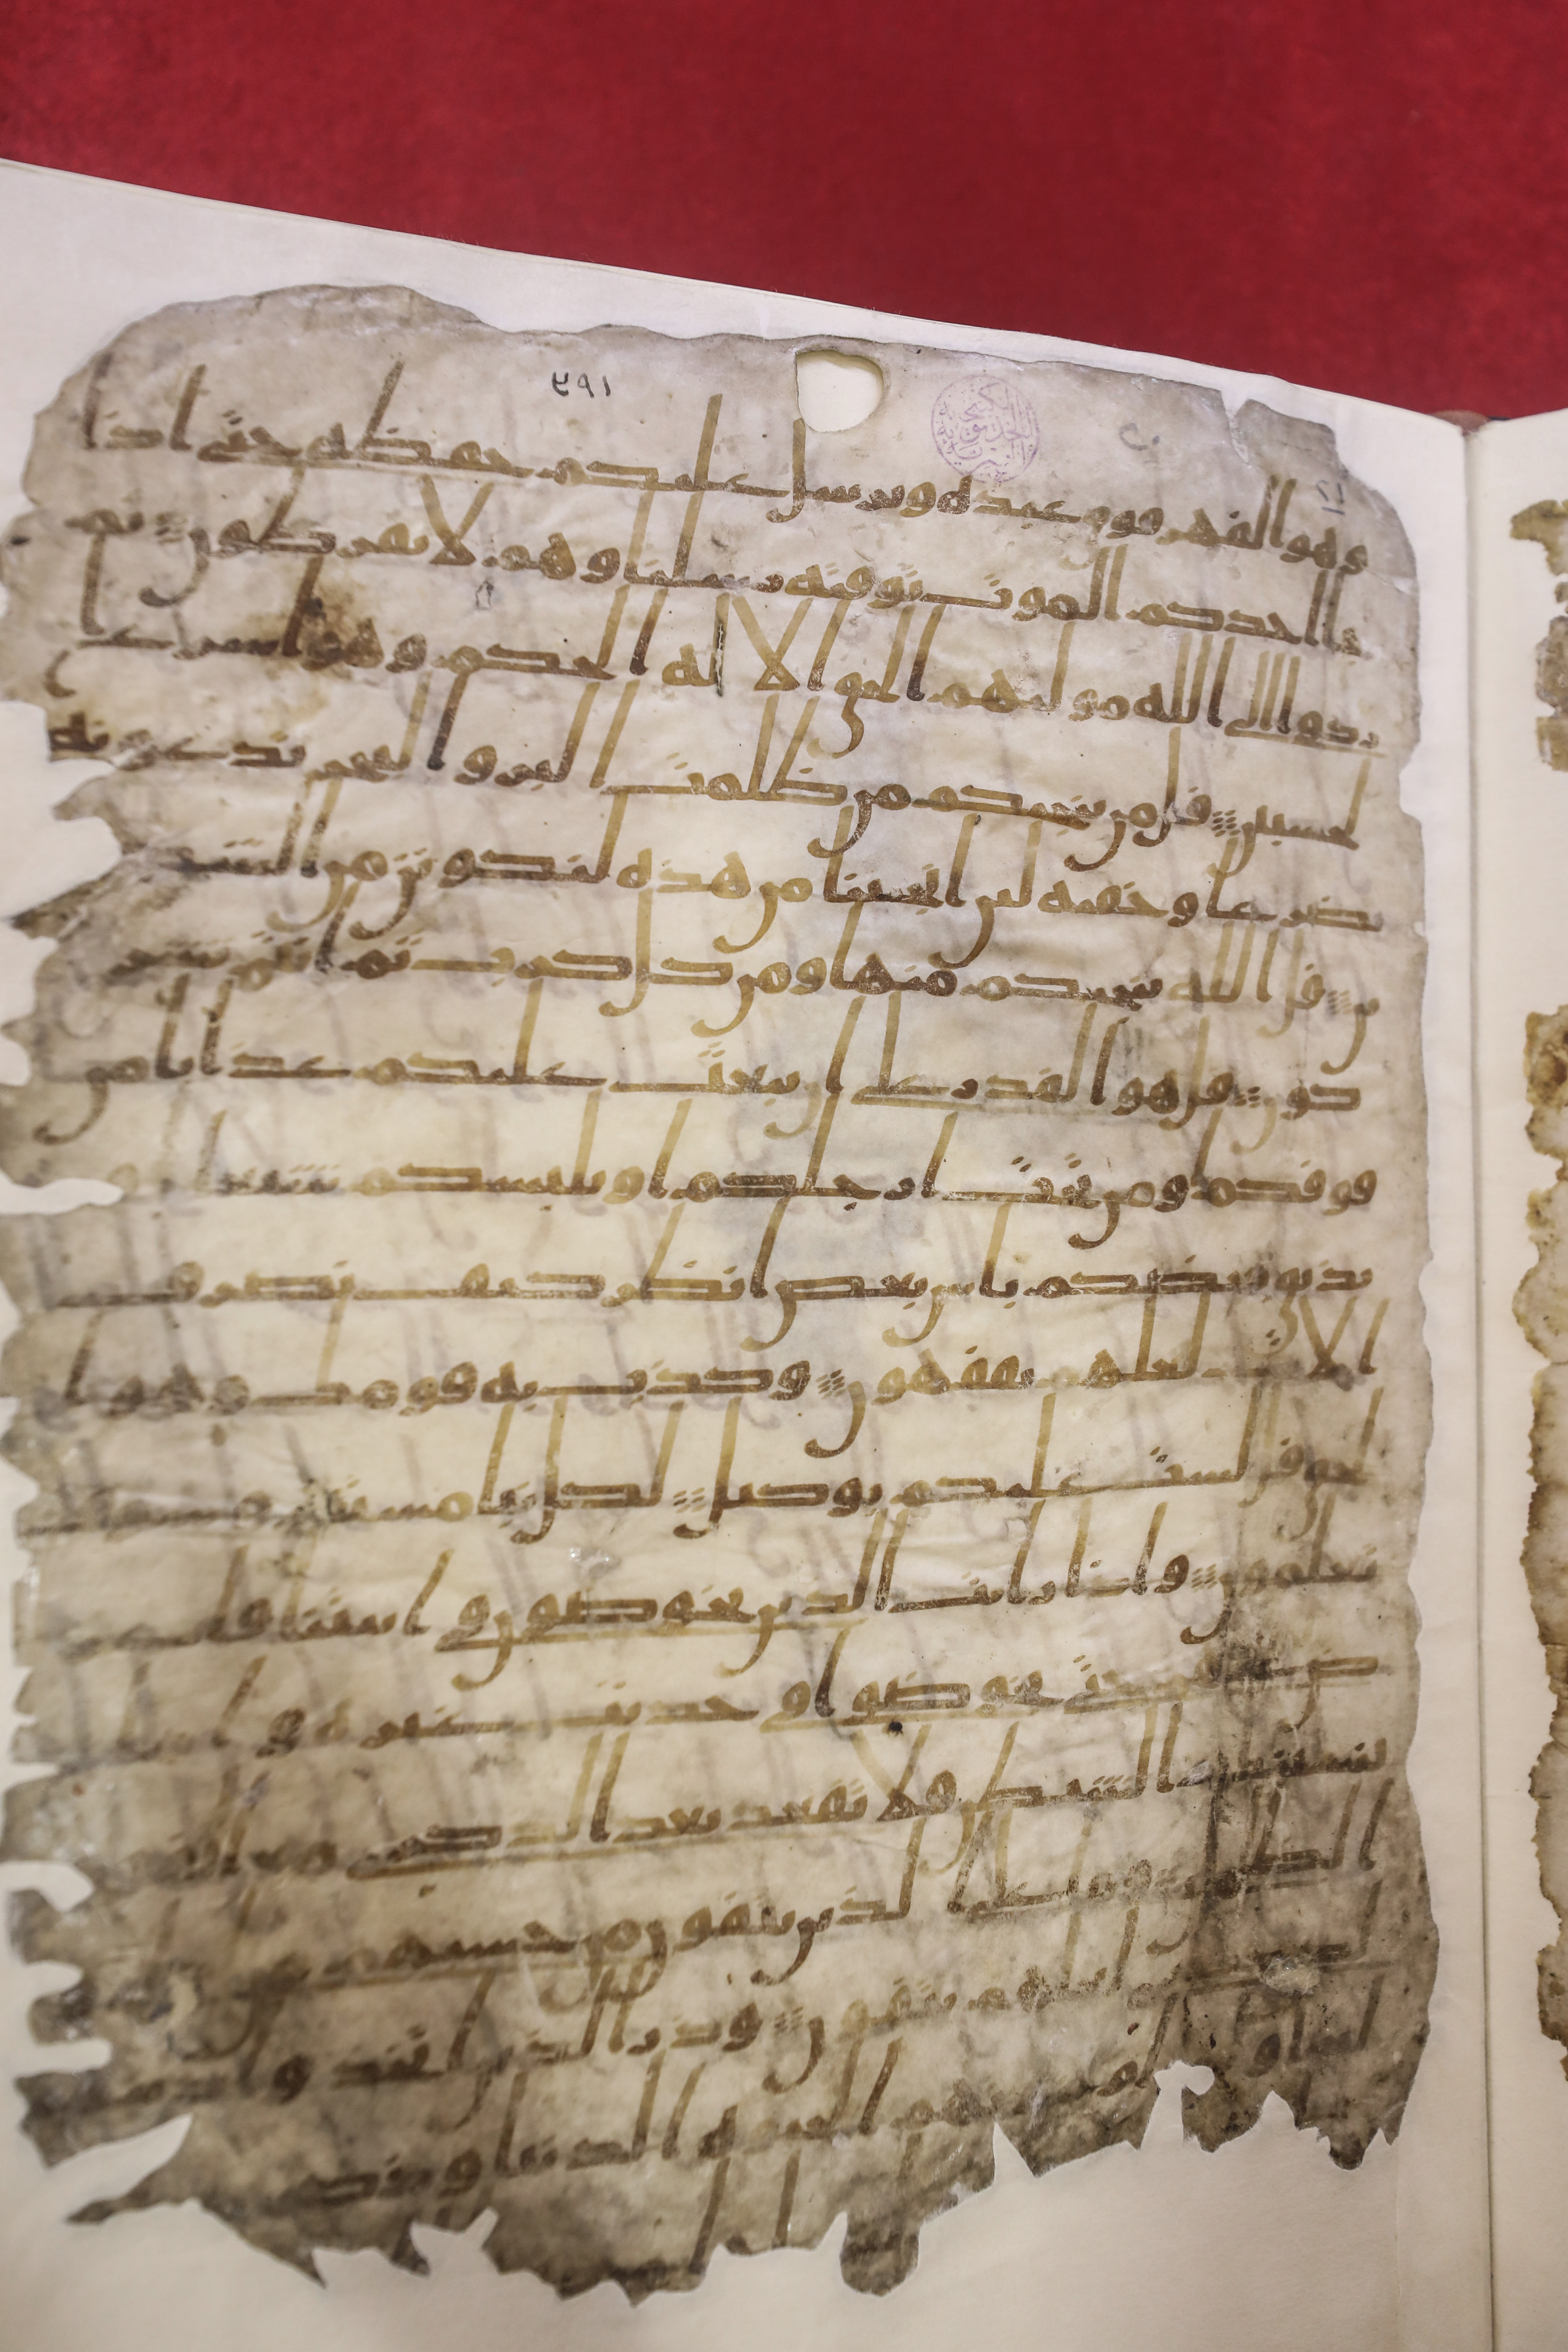 ٣٩١
وهو القهر فوق عبده ويرسل عليكم حفظه حتى اذا
جا احدكم الموت توفته رسلنا وهم لا يفرطون ثم
ردوا الى الله موليهم الحق الا له الحكم وهو اسرع ا
لحسبين قل من ينجيكم من ظلمت البر والبحر تدعونه
تضرعا وخفيه لين انجينا من هذه لنكونن من الشكر
ين قل الله ينجيكم منها ومن كل كرب ثم انتم تشر
كون قل هو القدر على ان يبعث عليكم عذابا من
فوقكم او من تحت ارجلكم او يلبسكم شيعا و
يذيق بعضكم باس بعض انظر كيف نصرف
الايت لعلهم يفقهون وكذب به قومك وهو ا
لحق قل لست عليكم بوكيل لكل نبا مستقر وسوف
تعلمون واذا رايت الذين يخوضون في ايتنا فاعر
ض عنهم حتى يخوضوا في حديث غيره واما
ينسينك الشيطن فلا تقعد بعد الذكرى مع القوم
الظلمين وما على الذين يتقون من حسبهم من
لعلهم يتقون وذر الذين اتخذوا
لعبا ولهوا وغرتهم الحيوه الدنيا وذكر